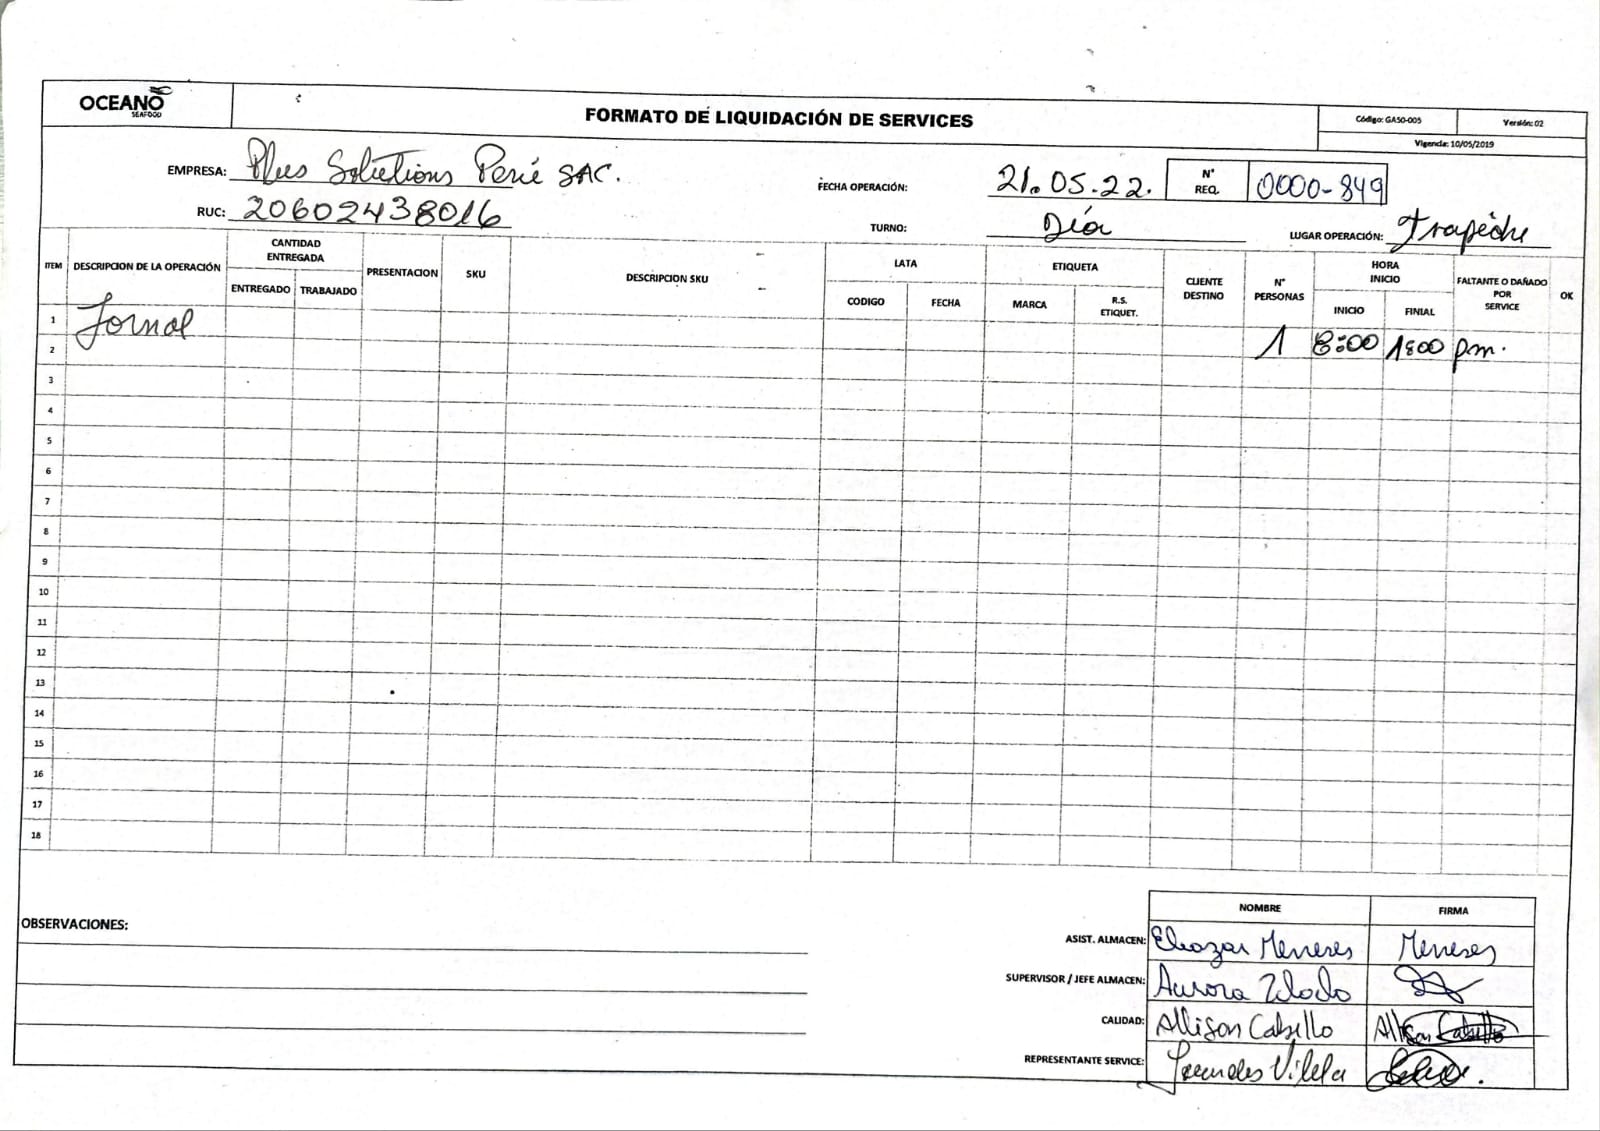 OCEANO
SEAFOOD
FORMATO DE LIQUIDACIÓN DE SERVICES
Código: GA50-005
Versión: 02
Vigencia: 10/05/2019
EMPRESA: Plus Solutions Perú SAC.
FECHA OPERACIÓN: 21.05.22.
N° REQ. 0000-849
RUC: 20602438016
TURNO: Día
LUGAR OPERACIÓN: Trapiche
ITEM
DESCRIPCION DE LA OPERACIÓN
CANTIDAD ENTREGADA
ENTREGADO
TRABAJADO
PRESENTACION
SKU
DESCRIPCION SKU
LATA
CODIGO
FECHA
ETIQUETA
MARCA
R.S. ETIQUET.
CLIENTE DESTINO
N° PERSONAS
HORA INICIO
INICIO
FINIAL
FALTANTE O DAÑADO POR SERVICE
OK
1 Jornal
2 1 8:00 1:00 pm.
3
4
5
6
7
8
9
10
11
12
13
14
15
16
17
18
OBSERVACIONES:
NOMBRE
FIRMA
ASIST. ALMACEN: Eleazar Meneses Meneses
SUPERVISOR / JEFE ALMACEN: Aurora
CALIDAD: Allison Cabello Allison Cabello
REPRESENTANTE SERVICE: Lourdes Vilela